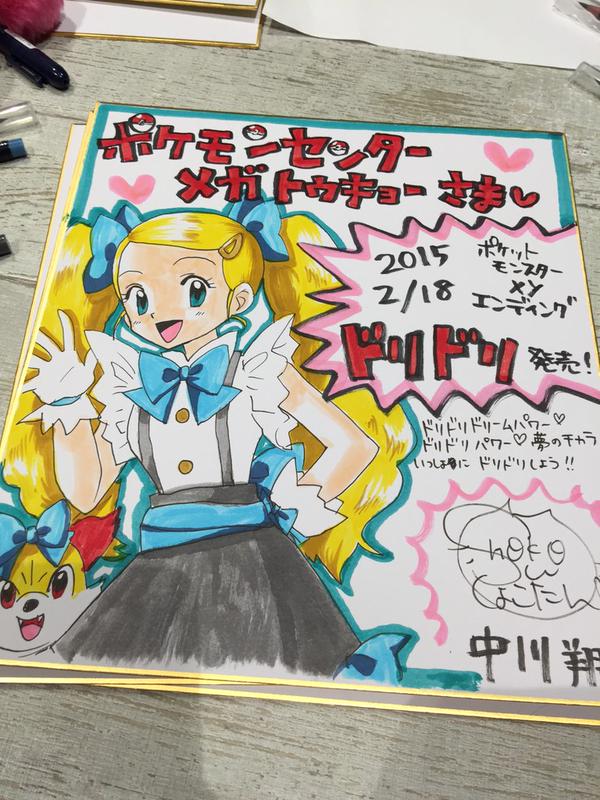 ポケモンセンター
メガトウキョーさま♥
2015
2/18
ポケット
モンスター
XY
エンディング
ドリドリ 発売!
ドリドリドリームパワー♡
ドリドリパワー♡夢のチカラ
いっしょにドリドリしよう!!
Shoko
しょこたん
中川翔